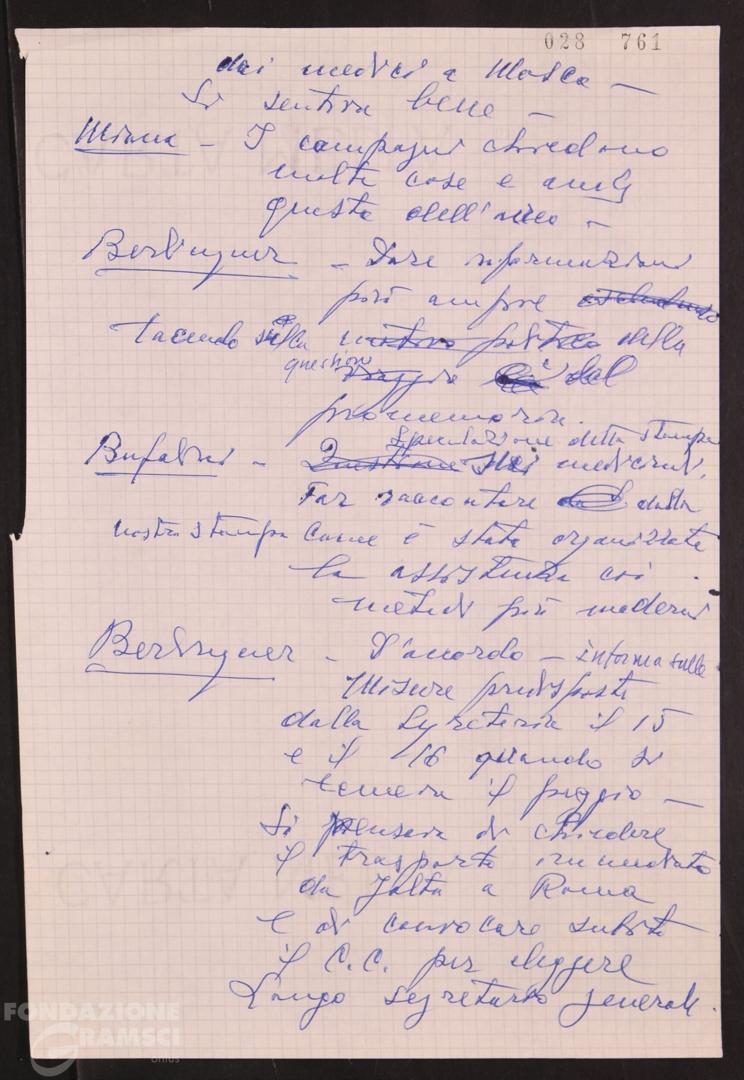 028 761
dai medici a Mosca —
Si sentiva bene —
Miana — I compagni chiedono
molte cose e anche
questa dell'
Berlinguer — Dare informazioni
più ampie
tacendo sulla della
questione viaggio e del
promemoria.
Speculazione della stampa
Bufalini — Questione dei medicinali.
Far raccontare dalla
nostra stampa come è stata organizzata
la assistenza coi
metodi più moderni
Berlinguer — D'accordo — informa sulle
misure predisposte
dalla Segreteria il 15
e il 16 quando si
temeva il peggio —
Si pensava di chiedere
il trasporto immediato
da Jalta a Roma
e di convocare subito
il C.C. per eleggere
Longo segretario generale.
FONDAZIONE
GRAMSCI
onlus